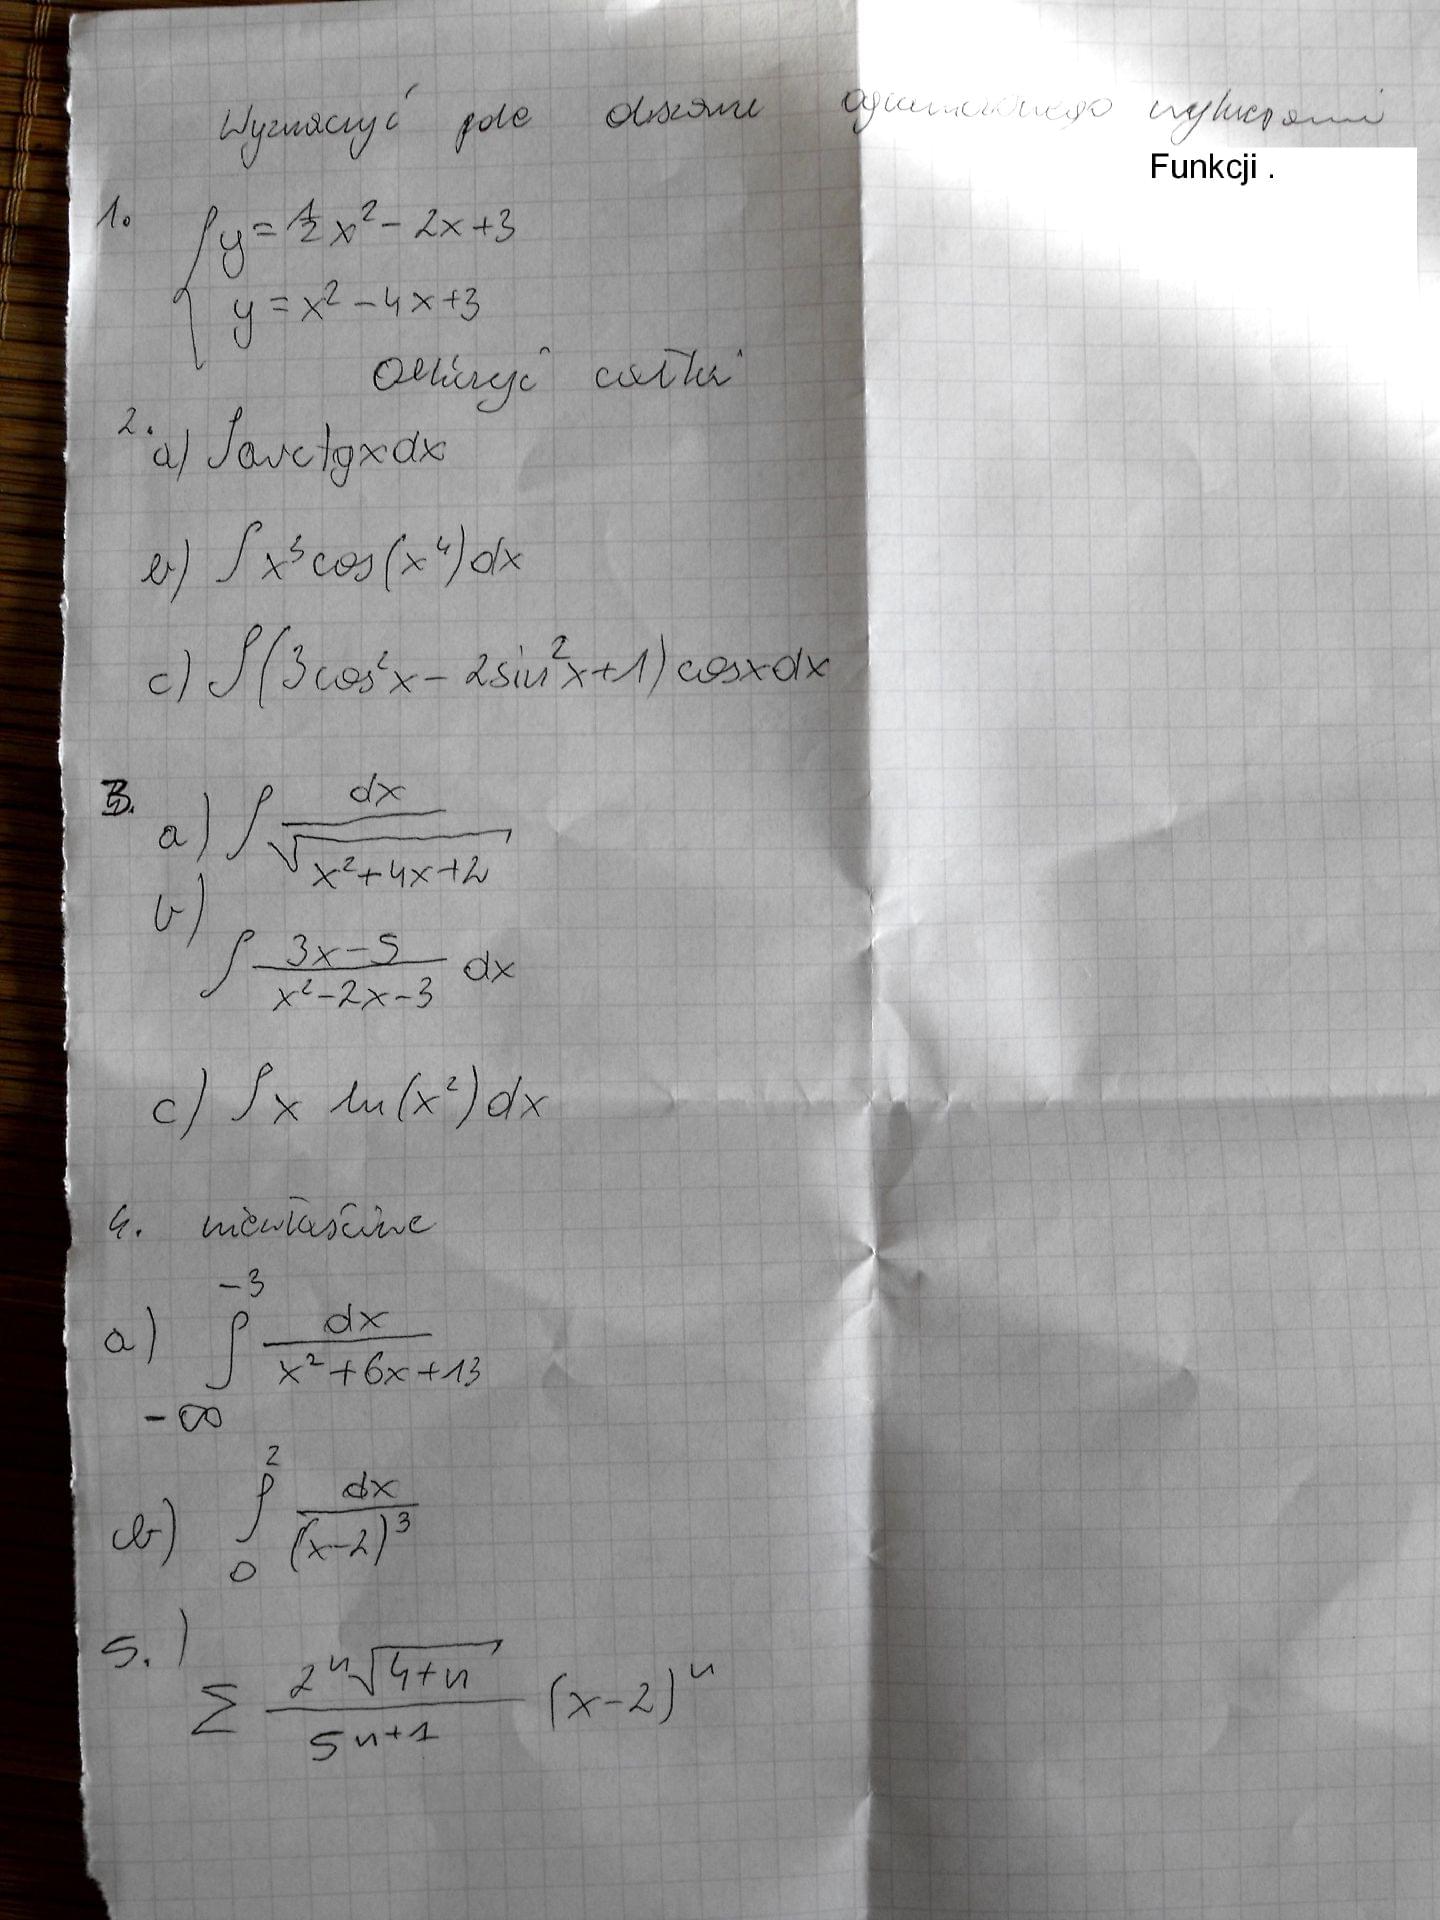 Wyznaczyć pole obszaru ograniczonego wykresami
Funkcji .
1. { y = 1/2 x² - 2x + 3
y = x² - 4x + 3
Obliczyć całki
2. a) ∫ arctgx dx
b) ∫ x³ cos(x⁴) dx
c) ∫ (3cos²x - 2sin²x + 1) cosx dx
3. a) ∫ dx / √(x² + 4x + 2)
b) ∫ (3x - 5) / (x² - 2x - 3) dx
c) ∫ x ln(x²) dx
4. niewłaściwe
a) ∫_{-∞}^{-3} dx / (x² + 6x + 13)
b) ∫_{0}^{2} dx / (x-2)³
5.) ∑ 2ⁿ√(4+n) / (5n+1) (x-2)ⁿ